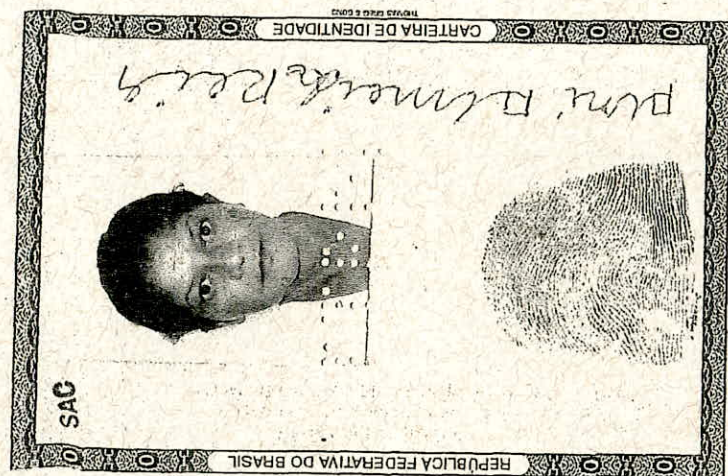 REPÚBLICA FEDERATIVA DO BRASIL
SAC
Almeida Reis
CARTEIRA DE IDENTIDADE
THOMAS GREG & SONS